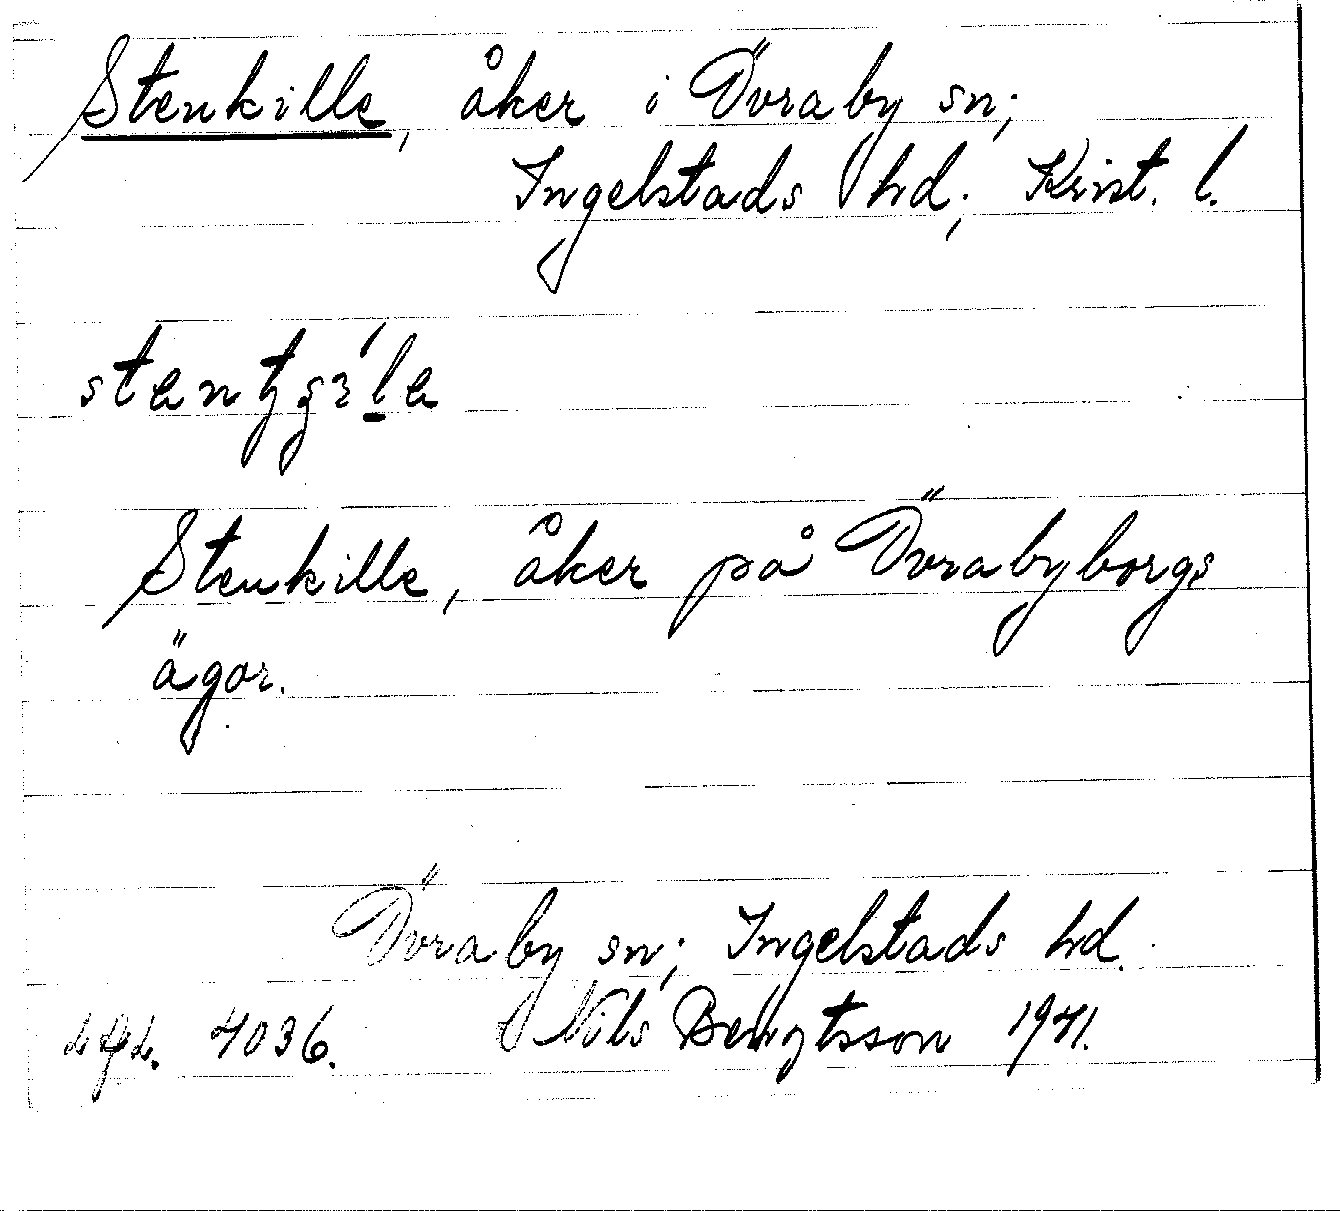 Stenkille, åker i Övraby sn;
Ingelstads hd; Krist. l.
Stenkille, åker på Övrabyborgs
ägor.
Övraby sn; Ingelstads hd.
4036. Nils Bengtsson 1941.